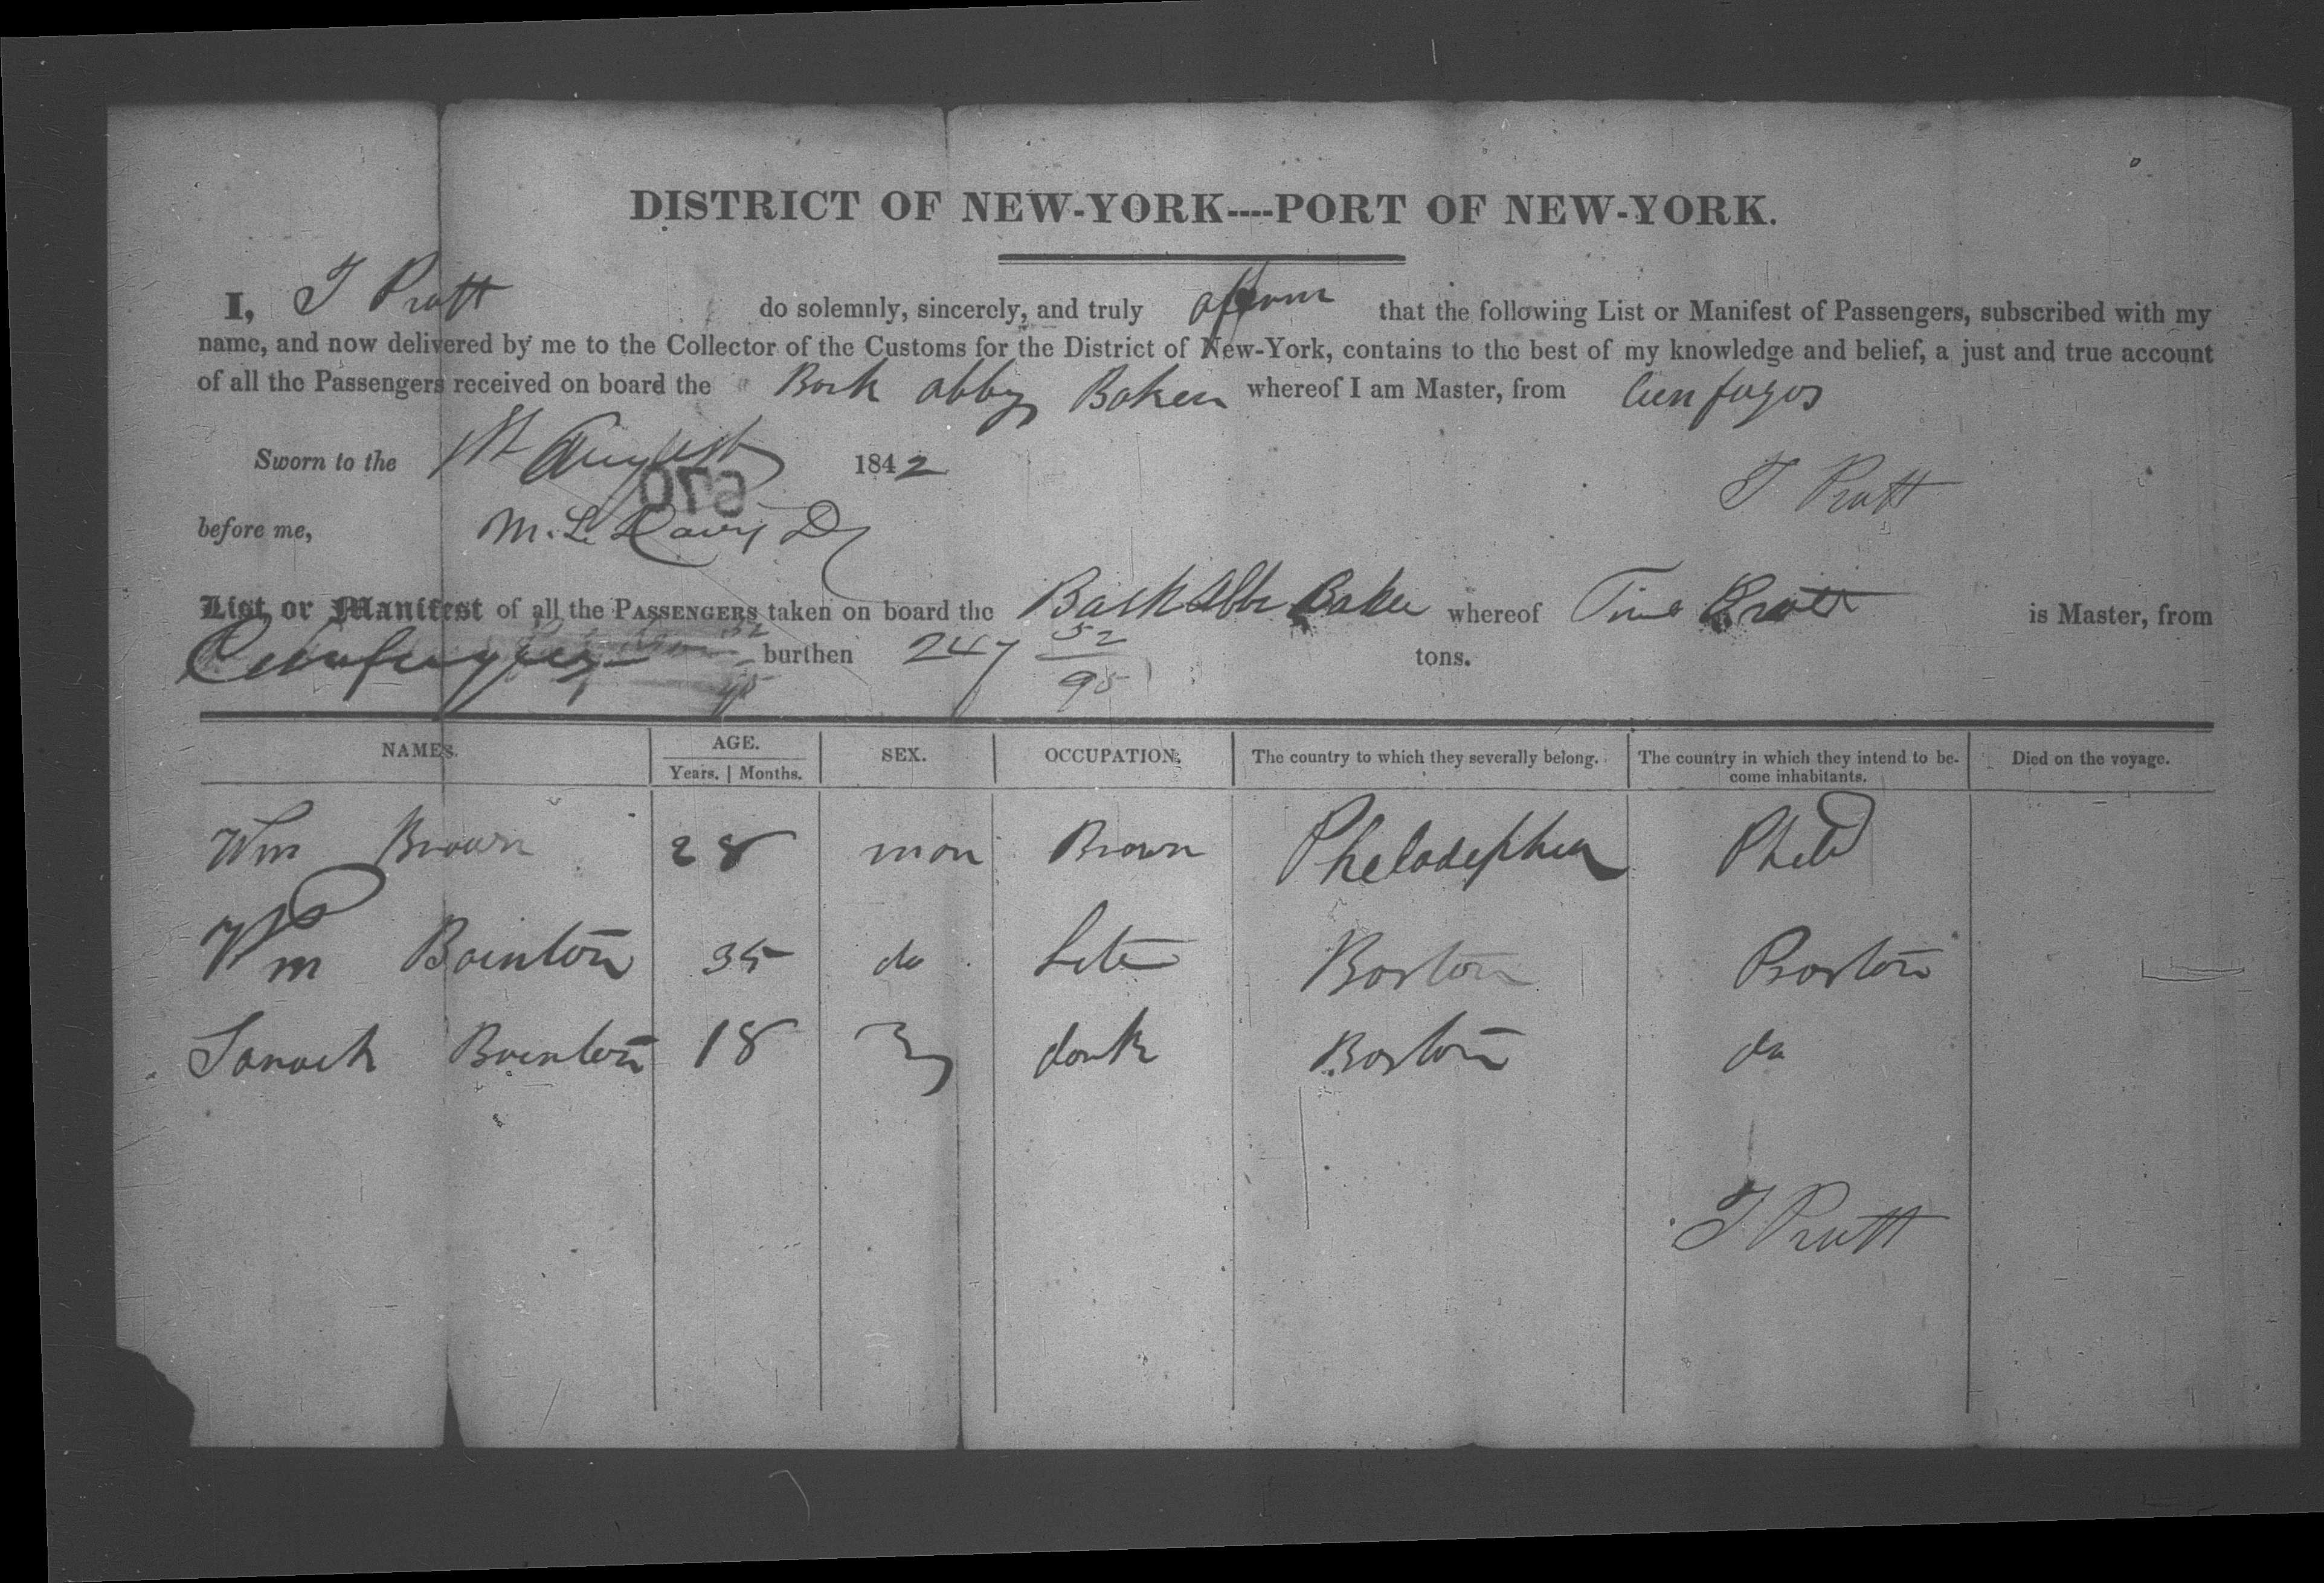 DISTRICT OF NEW-YORK----PORT OF NEW-YORK.
I, T Pratt do solemnly, sincerely, and truly affirm that the following List or Manifest of Passengers, subscribed with my
name, and now delivered by me to the Collector of the Customs for the District of New-York, contains to the best of my knowledge and belief, a just and true account
of all the Passengers received on board the Bark abby Baker whereof I am Master, from Cienfugos
Sworn to the 1st August 1842
670
T Pratt
before me, M. L. Davis
List or Manifest of all the PASSENGERS taken on board the Bark Abbe Baker whereof Pratt is Master, from
Cienfuegos burthen 247 52/95 tons.
NAMES. AGE. SEX. OCCUPATION. The country to which they severally belong. The country in which they intend to be- Died on the voyage.
Years. | Months. come inhabitants.
Wm Brown 28 man Brown Pheladephia Phild
Wm Bointon 35 do Boston Boston
Sarach Bointon 18 Boston do
T Pratt